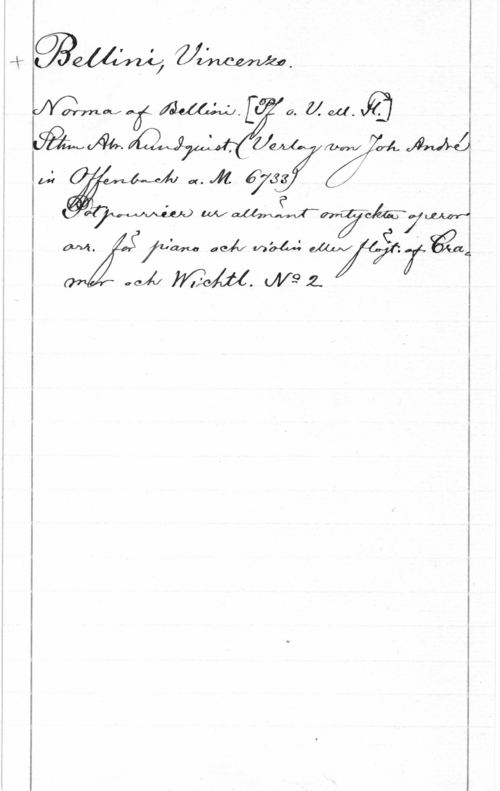 + Bellini, Vincenzo.
Norma af Bellini. [Pf o. V. ell. Fl.]
Sthm Abr. Lundquist. (Verlag von Joh. André
in Offenbach a. M. 6733)
Potpourrier ur allmänt omtyckta operor
arr. för piano och violin eller flöjt. af Cra-
mer och Wichtl. No 2